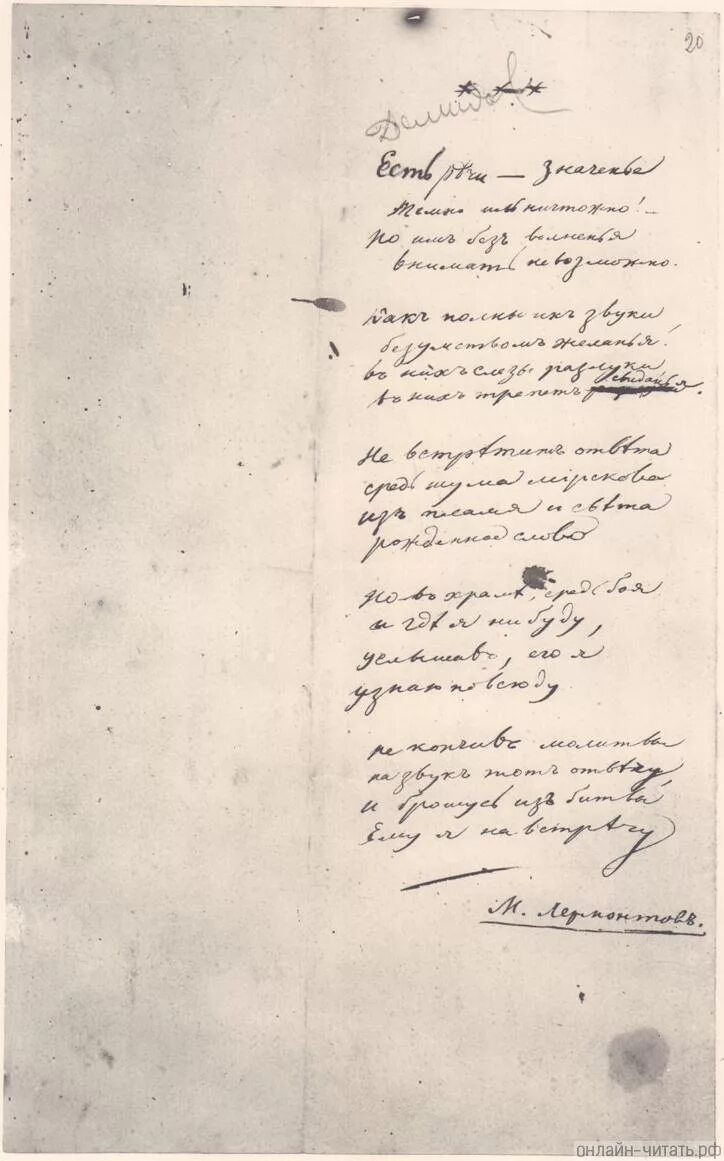 20
* * *
Есть рѣчи — значенье
Темно иль ничтожно! —
Но имъ безъ волненья
внимать невозможно.
Какъ полны ихъ звуки
безумствомъ желанья!
въ нихъ слезы разлуки,
въ нихъ трепетъ свиданья.
Не встрѣтитъ отвѣта
средь шума мірскова
изъ пламя и свѣта
рожденное слово
Но въ храмѣ, средь боя
и гдѣ я ни буду,
услышавъ, его я
узнаю повсюду
не кончивъ молитвы
на звукъ тотъ отвѣчу,
и брошусь изъ битвы
Ему я на встрѣчу
М. Лермонтовъ.
онлайн-читать.рф